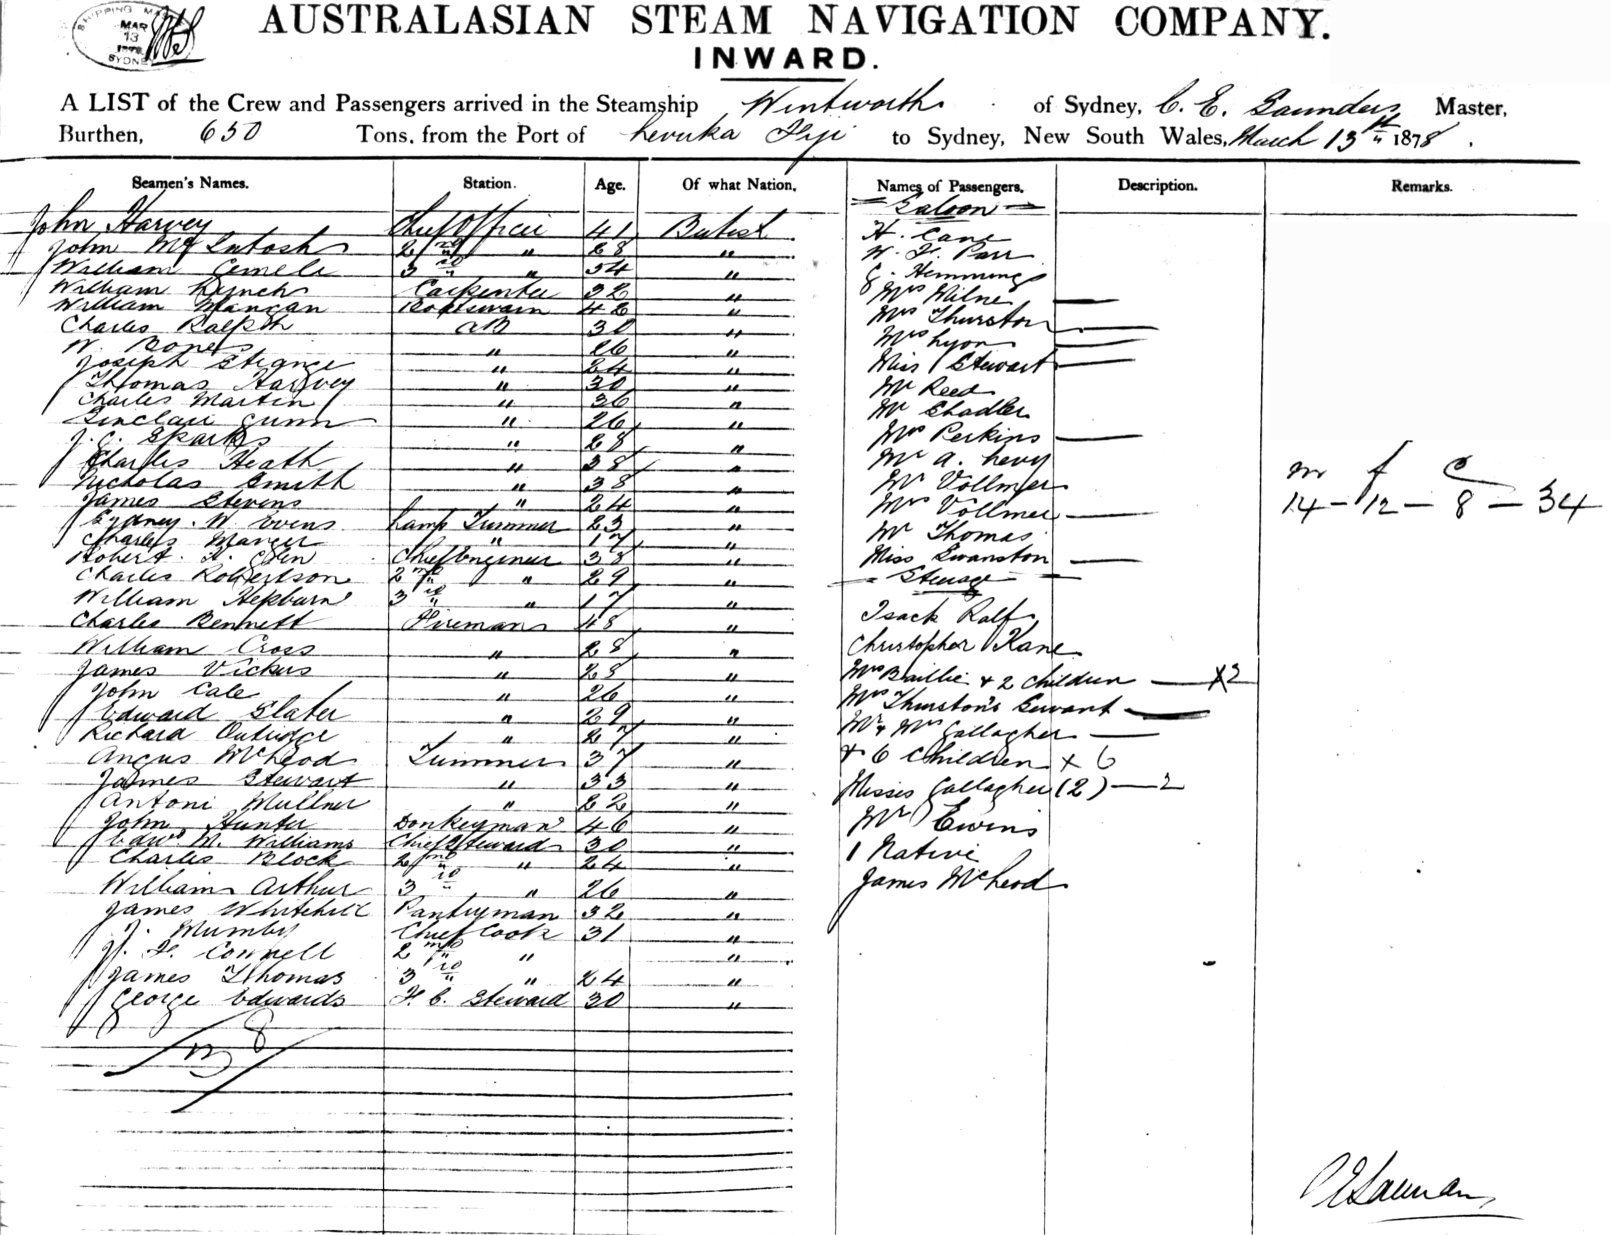 SHIPPING MAR 13 1878 SYDNEY
AUSTRALASIAN STEAM NAVIGATION COMPANY.
INWARD.
A LIST of the Crew and Passengers arrived in the Steamship Wentworth of Sydney, C. E. Saunders Master,
Burthen, 650 Tons, from the Port of Levuka Fiji to Sydney, New South Wales, March 13th 1878.
Seamen's Names. Station. Age. Of what Nation. Names of Passengers. Description. Remarks.
Saloon
John Harvey Chief Officer 41 British H. Cane
John McIntosh 2nd " 28 " W. F. Parr
William 3rd " 34 " Hemmings
William Lynch Carpenter 32 " Mrs Milne
William Mangan Boatswain 42 " Mrs Thurston
Charles Ralph AB 30 " Mrs Lyon
W. Bones " 26 " Miss Stewart
Joseph Strange " 24 "
Thomas Harvey " 30 " Mr Reed
Charles Martin " 36 " Mr Chadler
Sinclair Gunn " 26 "
J. C. Sparks " 28 " Mrs Perkins
Charles Heath " 38 " Mr A. Levy
Nicholas Smith " 38 " Mr Vollmer
James Stevens " 24 " Mrs Vollmer
Sydney W. Evens Lamp Trimmer 23 " Mr Thomas
Charles Manger " 17 "
Robert H. Chief Engineer 38 " Miss Swanston
Charles Robertson 2nd " 29 " Steerage
William Hepburn 3rd " 17 " Isack Ralf
Charles Bennett Fireman 48 "
William Cross " 28 " Christopher Kane
James Vickers " 28 " Mrs Baillie & 2 children x2
John Cale " 26 " Mrs Thurston's Servant
Edward Slater " 29 " Mr & Mrs Gallagher
Richard Outridge " 27 "
Angus McLeod Trimmer 37 " & 6 Children x 6
James Stewart " 33 " Misses Gallagher (2) 2
Antoni Mullner " 22 "
John Hunter Donkeyman 46 " Mr Ewins
Edwd M. Williams Chief Steward 30 " 1 Native
Charles Block 2nd " 24 "
William Arthur 3rd " 26 " James McLeod
James Whitehill Pantryman 32 "
J. Mumby Chief Cook 31 "
J. F. Connell 2nd " "
James Thomas 3rd " 24 "
George Edwards F. C. Steward 30 "
m f C
14 – 12 – 8 – 34